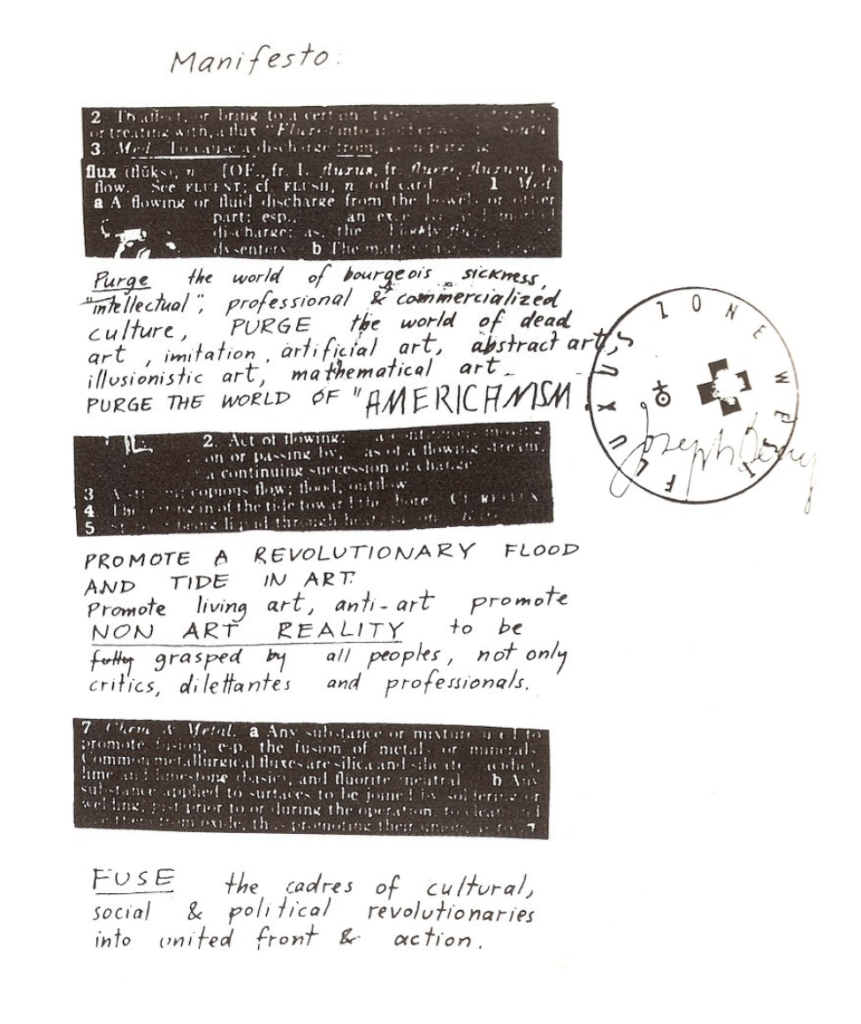 Manifesto:
2 To affect, or bring to a certain state,
or treating with, a flux "Fluxed into another world." South
3. Med. To cause a discharge from, as in purging
flux (flŭks), n. [OF., fr. L. fluxus, fr. fluere, fluxum, to
flow. See FLUENT; cf. FLUSH, n. (of cards).] 1 Med.
a A flowing or fluid discharge from the bowels or other
part: esp., an excessive and morbid
discharge: as, the bloody flux, or
dysentery. b The matter
Purge the world of bourgeois sickness,
"intellectual", professional & commercialized
culture, PURGE the world of dead
art, imitation, artificial art, abstract art,
illusionistic art, mathematical art.
PURGE THE WORLD OF "AMERICANISM
FLUXUS ZONE WEST
Joseph Beuys
2. Act of flowing: a continuous moving
on or passing by, as of a flowing stream,
a continuing succession of change.
3 A copious flow; flood; outflow
4 The setting in of the tide toward the shore. Cf. REFLUX
5 State of being liquid through heat
PROMOTE A REVOLUTIONARY FLOOD
AND TIDE IN ART.
Promote living art, anti-art promote
NON ART REALITY to be
fully grasped by all peoples, not only
critics, dilettantes and professionals.
7 Chem. & Metal. a Any substance or mixture used to
promote fusion, esp. the fusion of metals or minerals.
Common metallurgical fluxes are silica and silicates (acidic),
lime and limestone (basic), and fluorite (neutral). b Any
substance applied to surfaces to be joined by soldering or
welding, just prior to or during the operation, to clean and
free them from oxide, thus promoting their union, as
FUSE the cadres of cultural,
social & political revolutionaries
into united front & action.